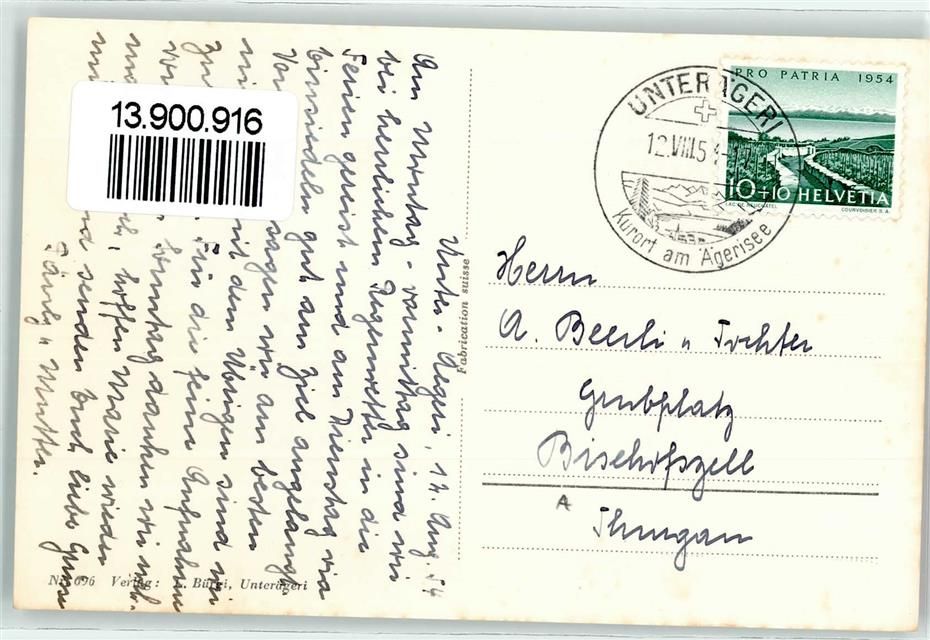 Unter-Aegeri, 12. Aug. 54
Am Montag-vormittag sind wir
bei herrlichem Regenwetter in die
Ferien gereist und am Dienstag via
Einsiedeln gut am Ziel angelangt
Von sagen wir am besten
mit dem Übrigen sind wir
Für die feine Aufnahme
Sonntag danken wir
hoffen Marie wieder
und senden Euch liebe Grüsse
u Mutter.
13.900.916
PRO PATRIA 1954
10+10 HELVETIA
LAC DE NEUCHATEL
COURVOISIER S.A.
UNTERÄGERI
12.VIII.54-17
Kurort am Ägerisee
Fabrication suisse
Herrn
A. Beerli u Tochter
Grubplatz
Bischofszell
A
Thurgau
Nr. 696 Verlag: A. Bürgi, Unterägeri